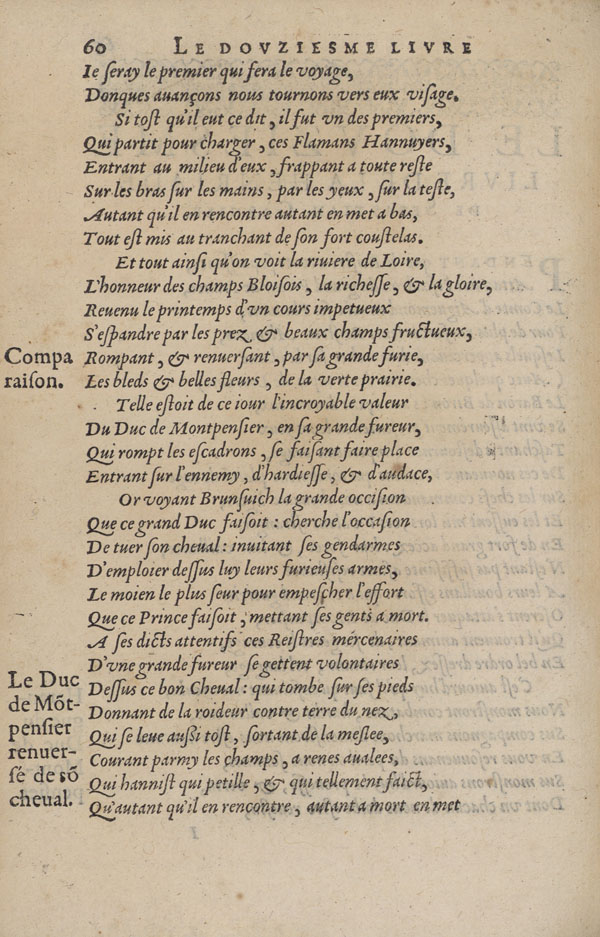 60 LE DOVZIESME LIVRE
Ie ſeray le premier qui fera le voyage,
Donques auançons nous tournons vers eux viſage.
Si toſt qu'il eut ce dit, il fut vn des premiers,
Qui partit pour charger, ces Flamans Hannuyers,
Entrant au milieu d'eux, frappant a toute reſte
Sur les bras ſur les mains, par les yeux, ſur la teſte,
Autant qu'il en rencontre autant en met a bas,
Tout eſt mis au tranchant de ſon fort couſtelas.
Et tout ainſi qu'on voit la riuiere de Loire,
L'honneur des champs Bloiſois, la richeſſe, & la gloire,
Reuenu le printemps d'vn cours impetueux
S'eſpandre par les prez & beaux champs fructueux,
Compa
raiſon.
Rompant, & renuerſant, par ſa grande furie,
Les bleds & belles fleurs, de la verte prairie.
Telle eſtoit de ce iour l'incroyable valeur
Du Duc de Montpenſier, en ſa grande fureur,
Qui rompt les eſcadrons, ſe faiſant faire place
Entrant ſur l'ennemy, d'hardieſſe, & d'audace,
Or voyant Brunſuich la grande occiſion
Que ce grand Duc faiſoit : cherche l'occaſion
De tuer ſon cheual : inuitant ſes gendarmes
D'emploier deſſus luy leurs furieuſes armes,
Le moien le plus ſeur pour empeſcher l'effort
Que ce Prince faiſoit, mettant ſes gents a mort.
A ſes dicts attentifs ces Reiſtres mercenaires
D'vne grande fureur ſe gettent volontaires
Le Duc
de Mõt-
penſier
renuer-
ſé de ſõ
cheual.
Deſſus ce bon Cheual : qui tombe ſur ſes pieds
Donnant de la roideur contre terre du nez,
Qui ſe leue auſſi toſt, ſortant de la meſlee,
Courant parmy les champs, a renes aualees,
Qui hanniſt qui petille, & qui tellement faict,
Qu'autant qu'il en rencontre, autant a mort en met